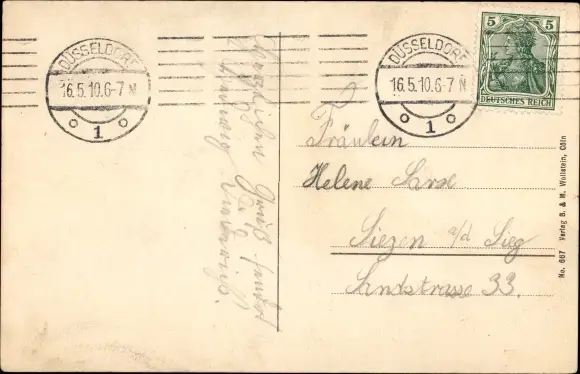 DÜSSELDORF
16.5.10.6-7 N
1
DÜSSELDORF
16.5.10.6-7 N
1
5 5
DEUTSCHES REICH
Herzlichen Gruß sendet
Fräulein
Helene
Siegen a/d Sieg
Sandstrasse 33.
No. 667 Verlag B. & M. Wollstein, Cöln